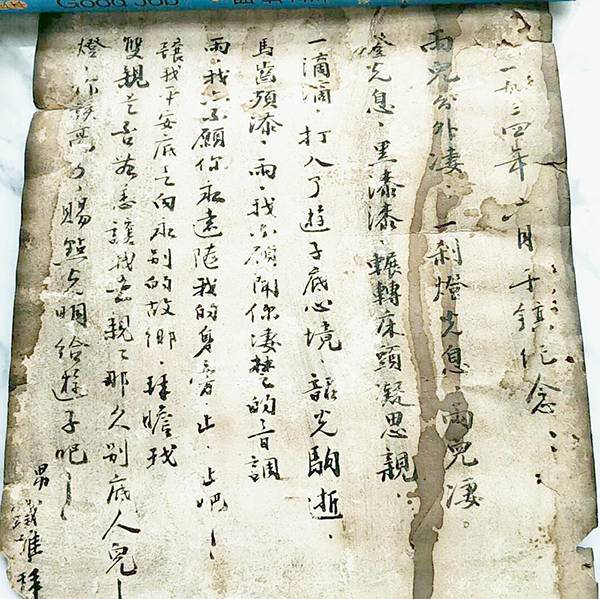 Good Job
一九三四年六月于鎮作念:::
雨兒分外凄,一剎燈光息,雨兒凄。
燈光息,黑漆漆,輾轉床頭凝思親,
一滴滴,打入了遊子底心境,韶光駒逝,
馬齒頻添,雨,我不願聞你凄楚的音調
雨,我不願你永遠随我的身旁,止,止吧!
讓我平安底走向永別的故鄉,拜瞻我
雙親 讓我 親親那久別底人兒!
燈,你 賜點光明給遊子吧!
男 雄 拜